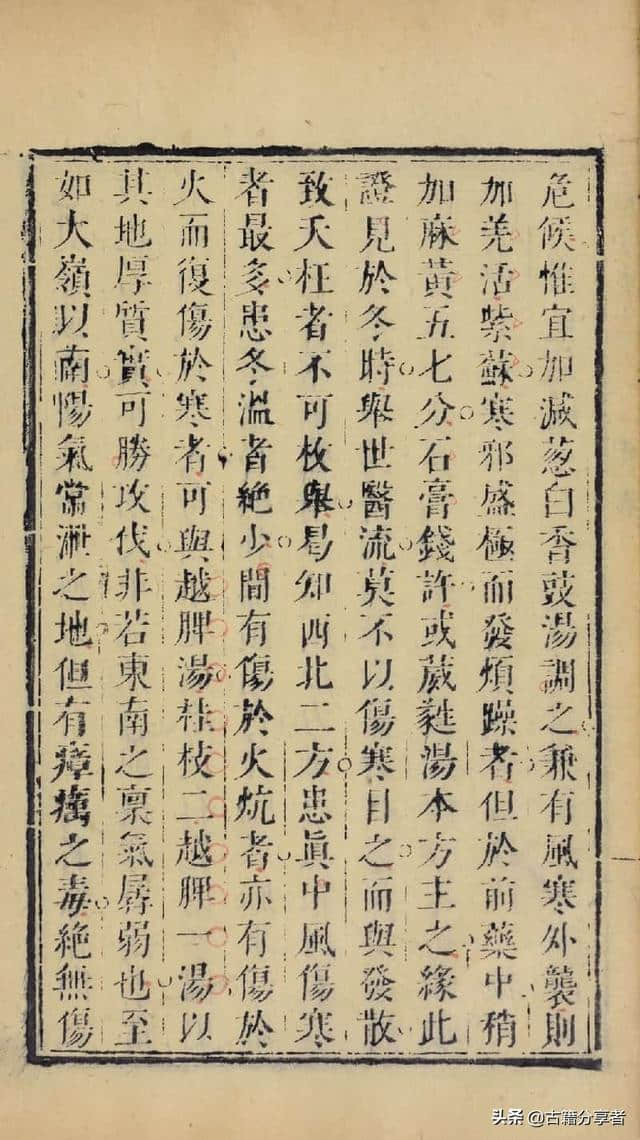 危候惟宜加減葱白香豉湯調之兼有風寒外襲則
加羌活紫蘇寒邪盛極而發煩躁者但於前藥中稍
加麻黃五七分石膏錢許或葳蕤湯本方主之緣此
證見於冬時舉世醫流莫不以傷寒目之而與發散
致夭枉者不可枚舉曷知西北二方患眞中風傷寒
者最多患冬溫者絶少間有傷於火炕者亦有傷於
火而復傷於寒者可與越脾湯桂枝二越脾一湯以
其地厚質實可勝攻伐非若東南之禀氣孱弱也至
如大嶺以南陽氣常泄之地但有瘴癘之毒絶無傷
头条 @古籍分享者